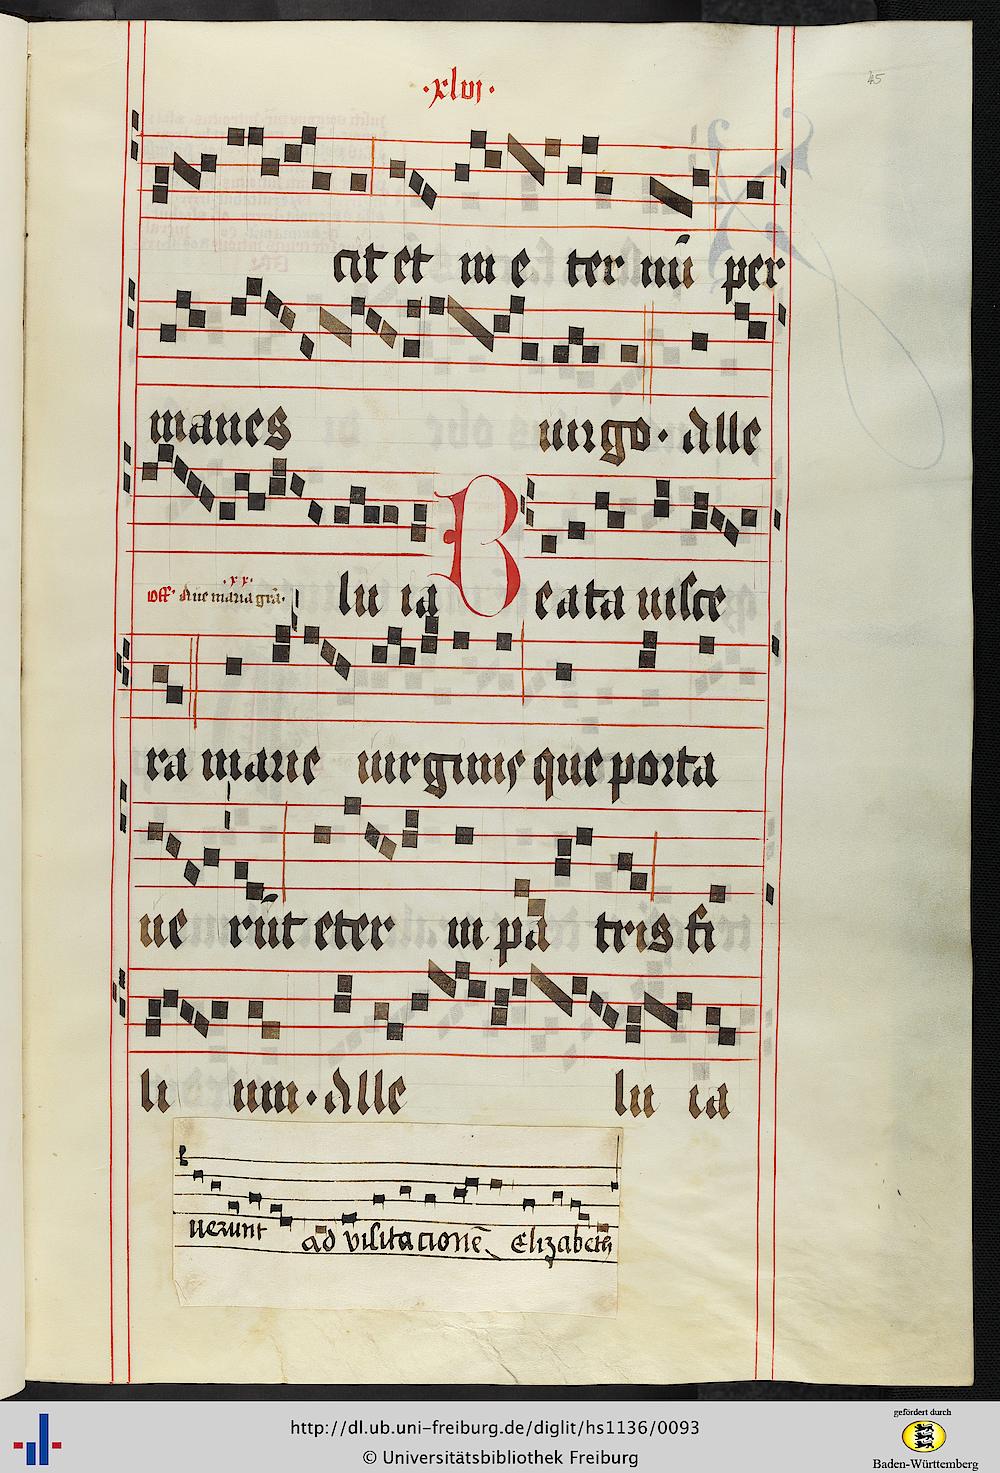 ·xlvj·
45
cit et in e ter nū per
manes uirgo· Alle
off· Aue maria grā· ·xx· lu ia Beata uisce
ra marie uirginis que porta
ue rūt eter ni pa tris fi
li um· Alle lu ia
uerunt ad visitacionē Elizabeth
http://dl.ub.uni-freiburg.de/diglit/hs1136/0093
© Universitätsbibliothek Freiburg
gefördert durch
Baden-Württemberg